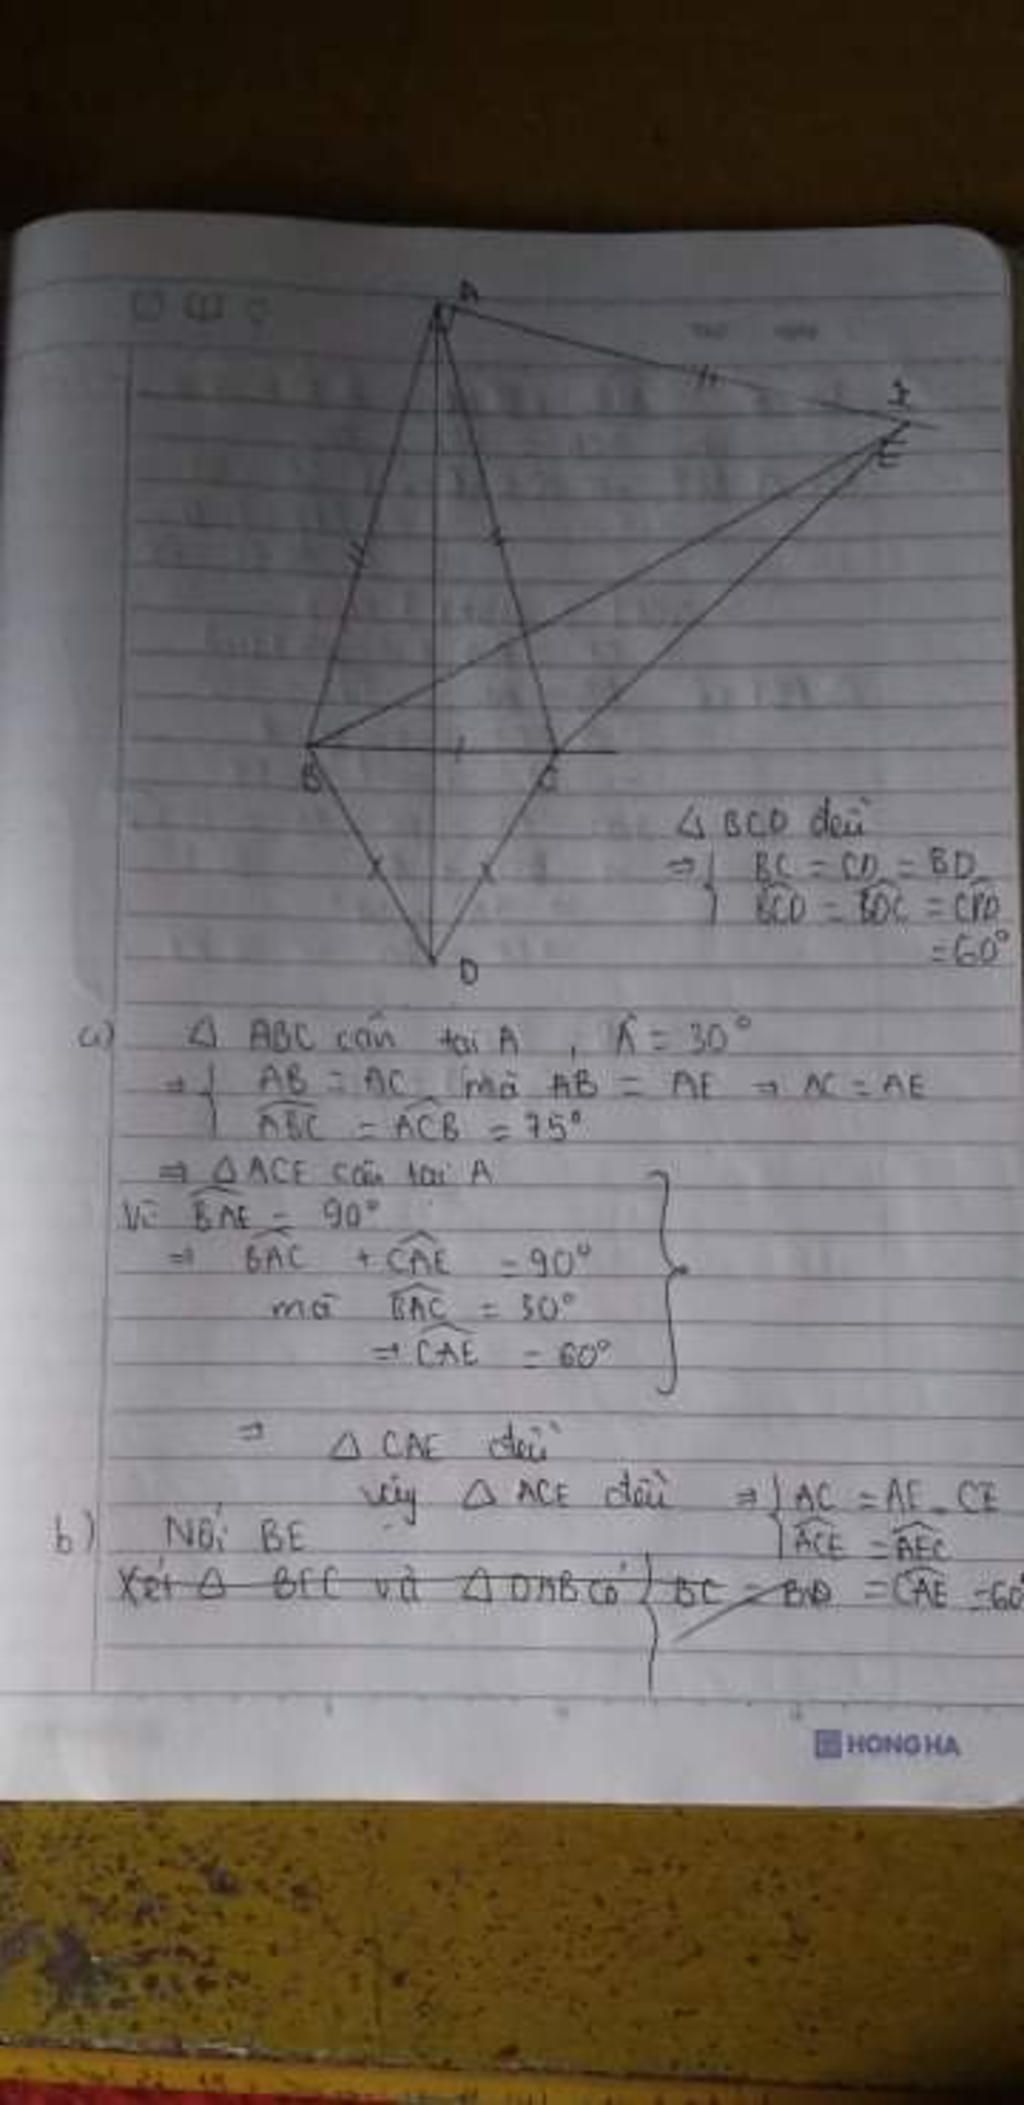 A
E
B
C
D
△ BCD đều
⇒ { BC = CD = BD
BCD = BDC = CBD
= 60°
a) △ ABC cân tại A , Â = 30°
⇒ { AB = AC mà AB = AE ⇒ AC = AE
ABC = ACB = 75°
⇒ △ACE cân tại A
Vì BAE = 90°
⇒ BAC + CAE = 90°
mà BAC = 30°
⇒ CAE = 60°
⇒ △ CAE đều
vậy △ ACE đều ⇒ { AC = AE = CE
ACE = AEC
b) Nối BE
= CAE = 60°
Xét △ BEC và △ DAB có { BC = BD
HONG HA